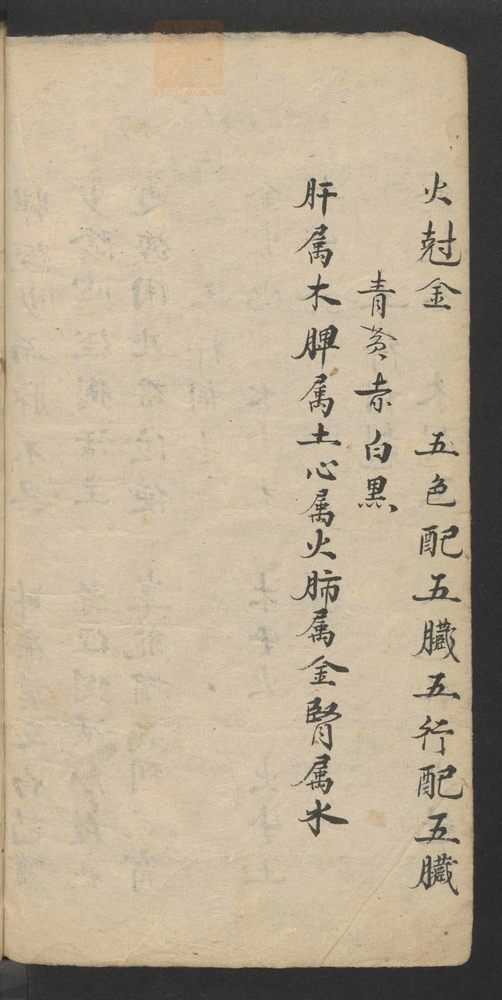 火尅金　五色配五臓五行配五臓
青黃赤白黒
肝属木脾属土心属火肺属金腎属水